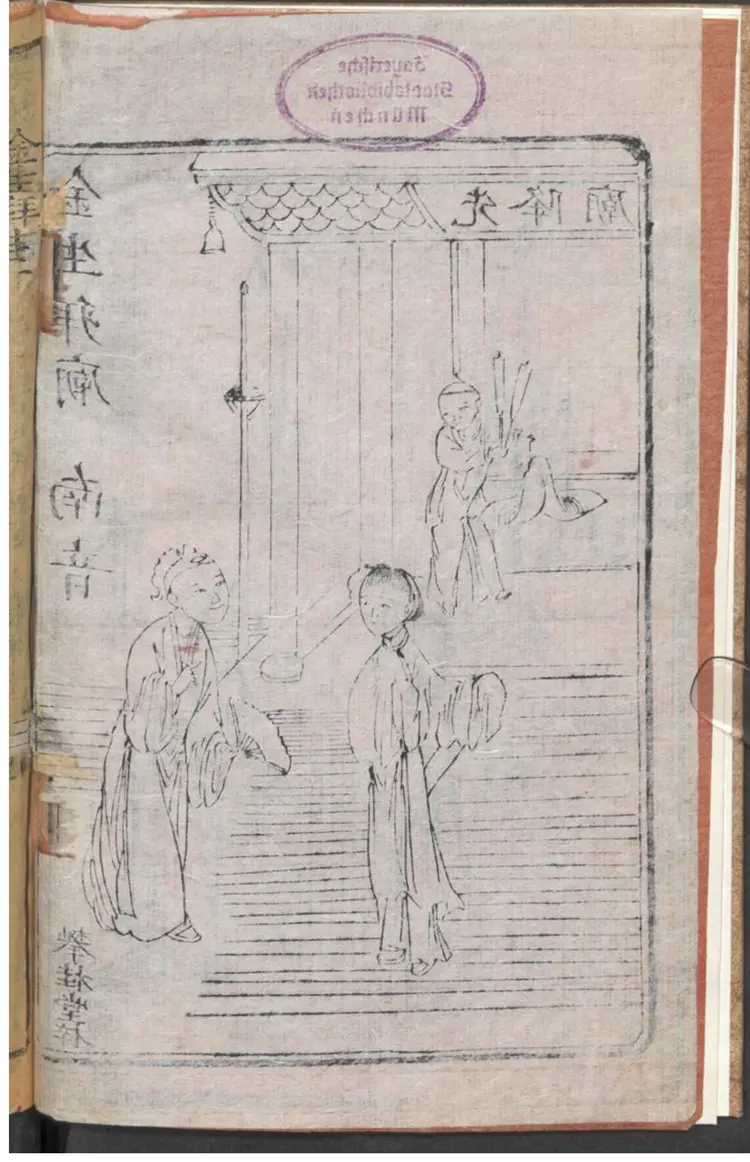 Bayerische
Staatsbibliothek
München
先降廟
金生拜廟 南音
攀桂堂